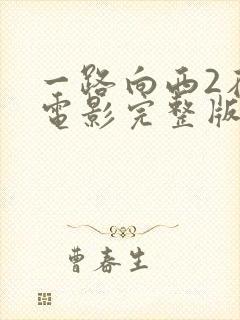 一路向西2在
電影完整版
曹春生